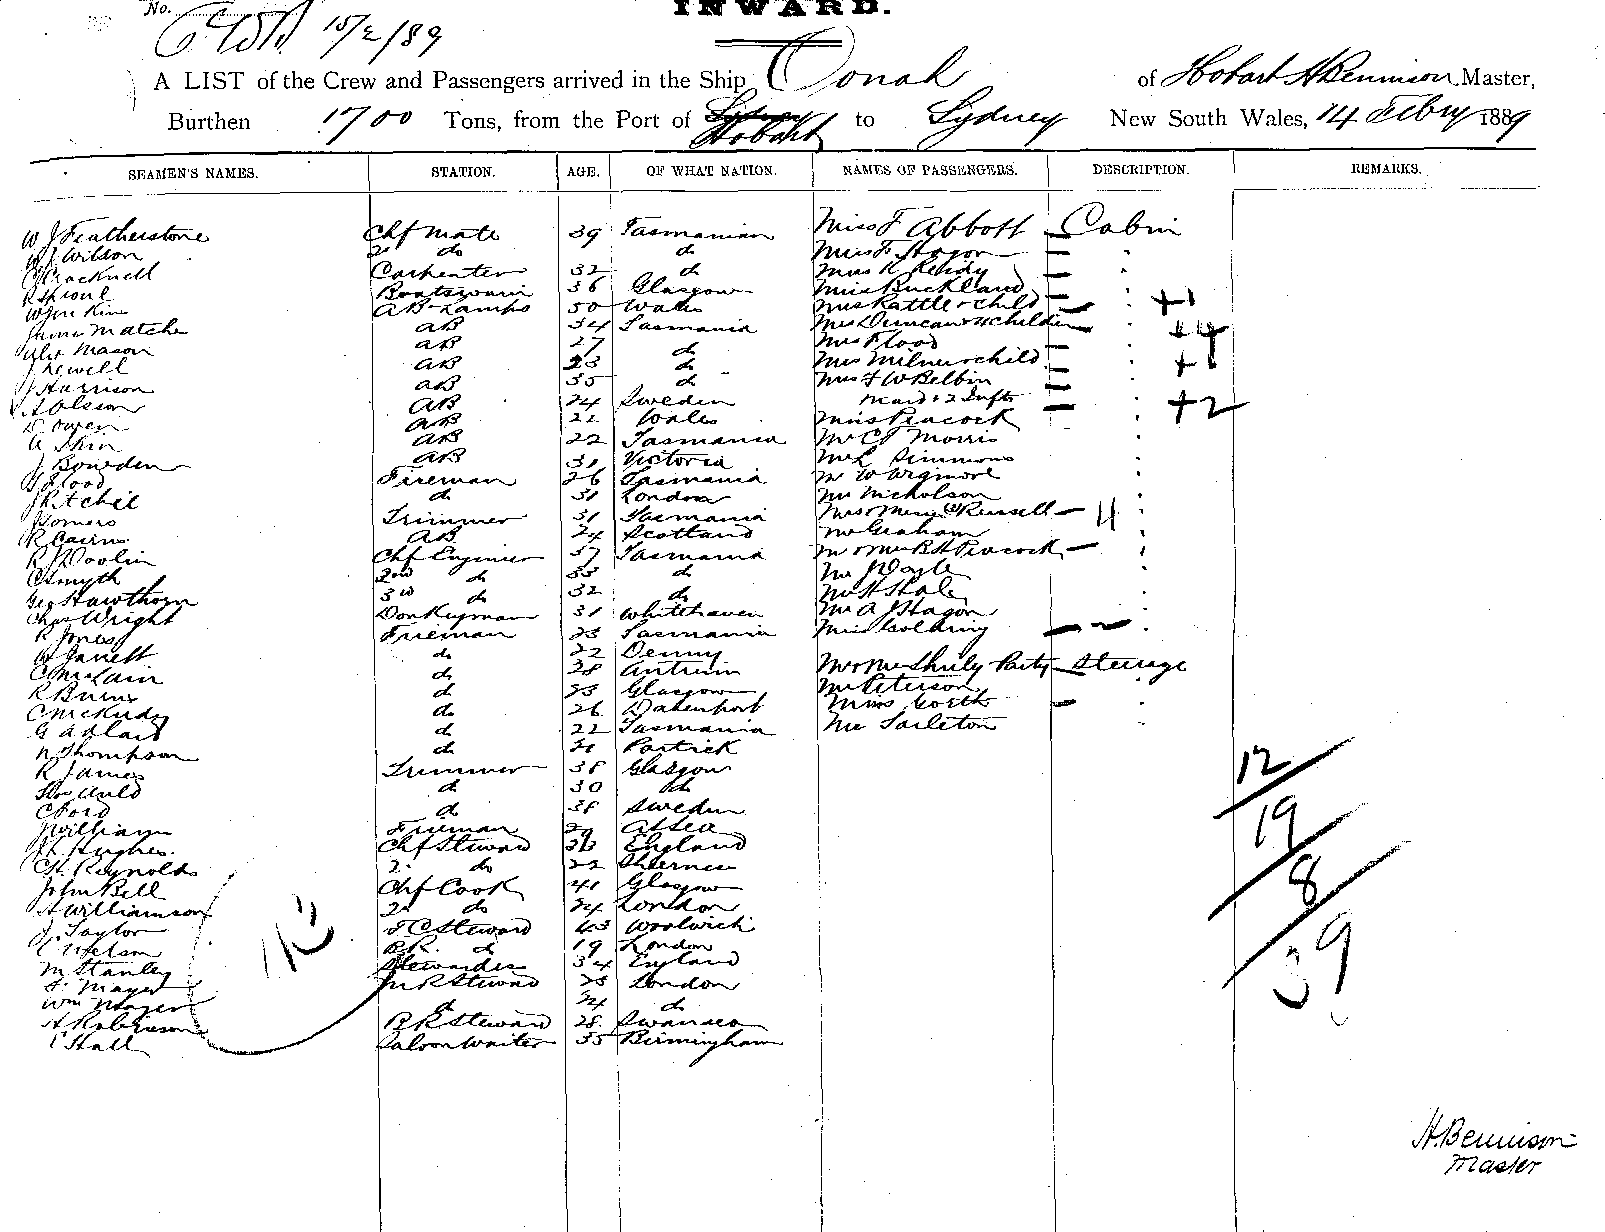 No.
INWARD.
15/2/89
A LIST of the Crew and Passengers arrived in the Ship Oonah of Hobart H Bennison Master,
Burthen 1700 Tons, from the Port of Hobart to Sydney New South Wales, 14 Febry 1889
SEAMEN'S NAMES. STATION. AGE. OF WHAT NATION. NAMES OF PASSENGERS. DESCRIPTION. REMARKS.
W J Featherstone Chf Mate 39 Tasmanian Miss F Abbott — Cabin
Wilson 2 do do Miss F Hagon —
Cracknell Carpenter 32 do Miss K Reidy —
Sproul Boatswain 36 Glasgow Miss Buckland —
AB Lamps 50 Wales Mrs Rattle & child — +1
James Matche AB 34 Tasmania Mrs Duncan & 4 children — +4
Alex Mason AB 27 do Mrs Flood —
J Newell AB 23 do Mrs Milner & child — +1
J Harrison AB 35 do Mrs F W Belbin —
A Olsson AB 24 Sweden maid & 2 Infts — +2
D. Owen AB 21 Wales Miss Peacock
A Skin AB 22 Tasmania Mr C J Morris
J Bowden AB 31 Victoria Mr L Simmons
Flood Fireman 26 Tasmania Mr W Wigmore
J Ritchie do 31 London Mr Nicholson
J Somers Trimmer 31 Tasmania Mr & Mrs C Russell — 4
R Cairns AB 24 Scotland Mr Graham
R J Woolin Chf Engineer 37 Tasmania Mr & Mrs R H Peacock —
C Smyth 2nd do 33 do Mr J Doyle
Geo Hawthorn 3rd do 32 do Mr H Hale
Chas Wright Donkeyman 31 Whitehaven Mr A J Hagon
R Jones Fireman 23 Tasmania Miss Goldring —
Jarrett do 22 Denny
C McLain do 28 Antrim Mr & Mrs Shuly Party — Steerage
R Burns do 23 Glasgow Mr Peterson
C McKirdy do 26 Davenport Miss North —
G Adlard do 22 Tasmania Mr Tarleton
N Thompson do 21 Partick
R James Trimmer 38 Glasgow
Auld do 30 do
C Ford do 38 Sweden
J William Fireman 29
Hughes. Chf Steward 33 England
C H. Reynolds 2 do 22 Sheerness
John Bell Chf Cook 41 Glasgow
A Williamson 2 do 24 London
J. Taylor F C Steward 43 Woolwich
C Nelson B.R. do 19 London
M Stanley Stewardess 34 England
F. Mayer M R Steward 23 London
Wm Mayer do 24 do
A Robinson B R Steward 28 Swansea
C Hall Saloon Waiter 35 Birmingham
12
19
8
39
H. Bennison
Master